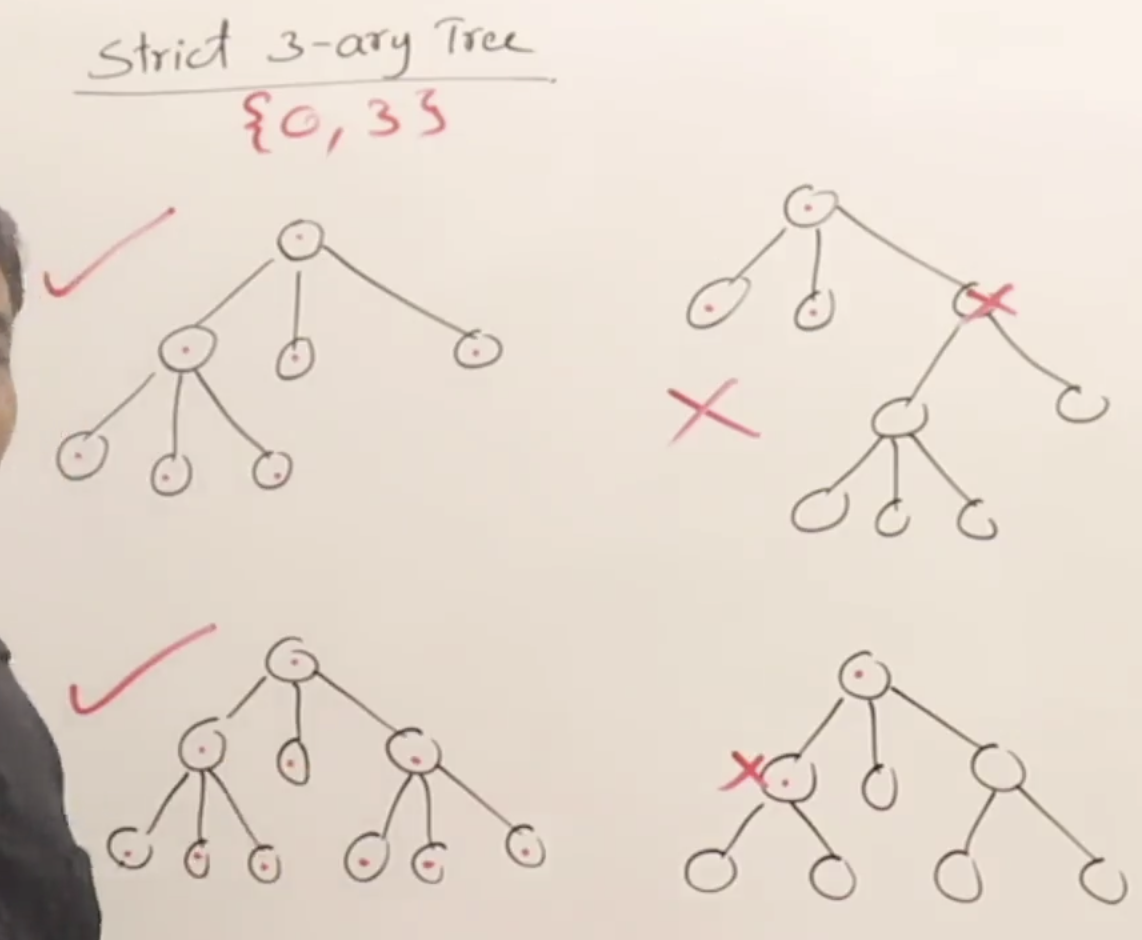 Strict 3-ary Tree
{0,3}